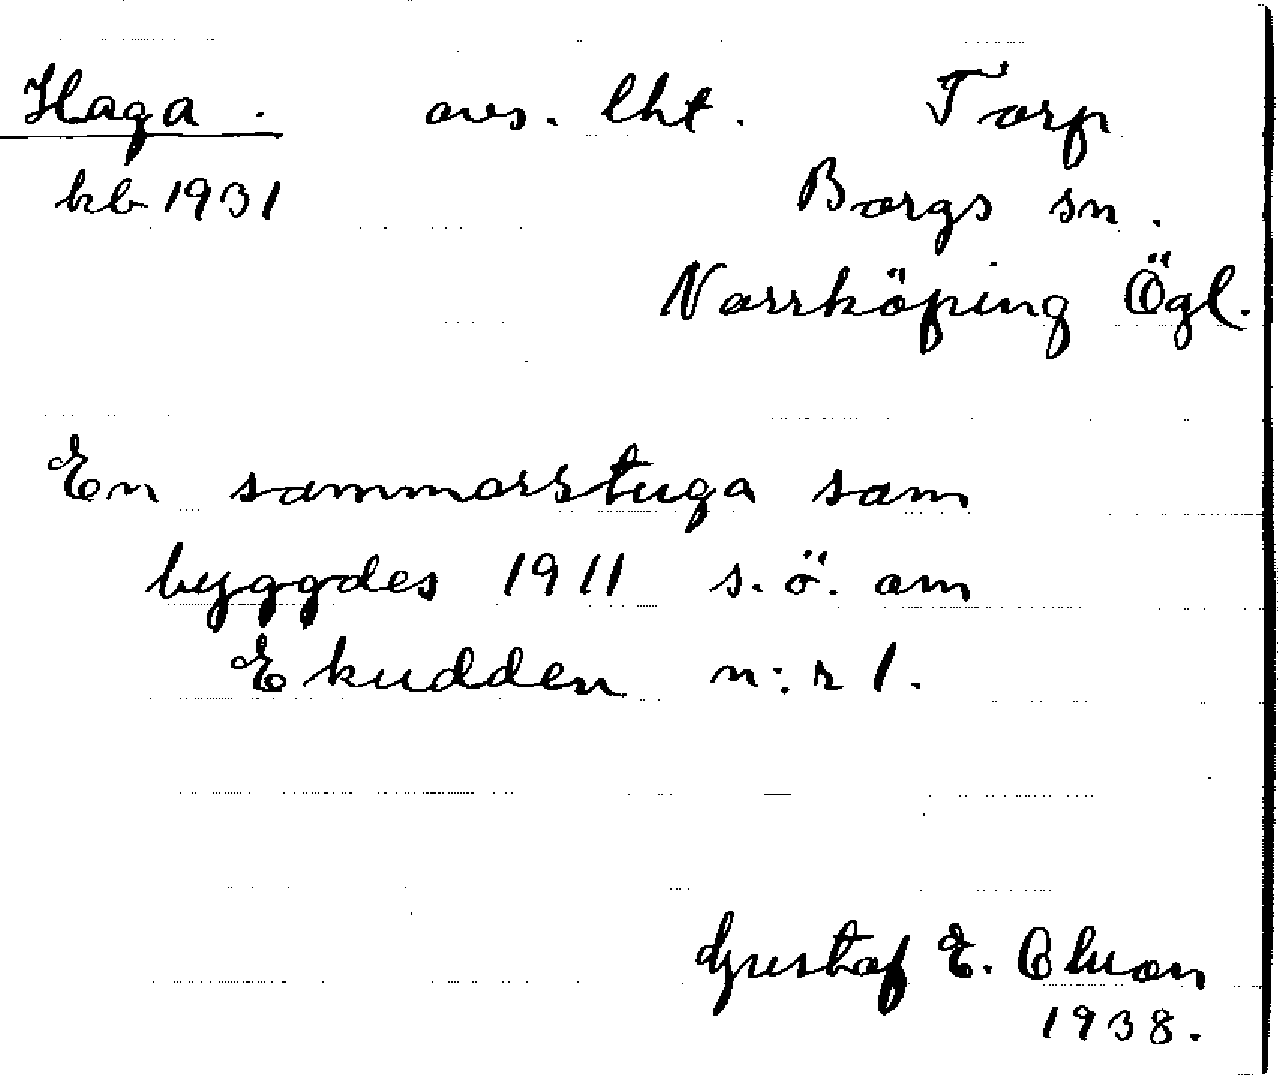 Haga. avs. lht. Torp
kb 1931 Borgs sn.
Norrköping Ögl.
En sommarstuga som
byggdes 1911 s.ö. om
Ekudden n:r 1.
Gustaf E.
1938.